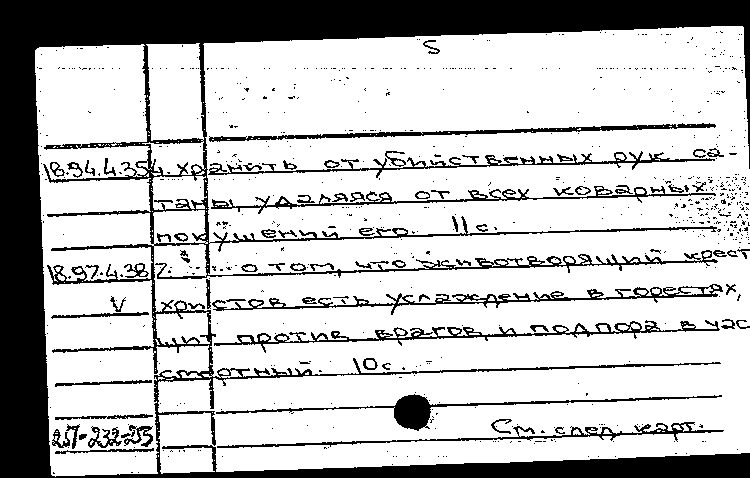 5
18.94.4.354. хранить от убийственных рук са-
таны, удаляяся от всех коварных
покушений его. 11 с.
18.97.4.387. ... о том, что животворящий крест
V христов есть услаждение в горестях,
щит против врагов, и подпора в час
смертный. 10 с.
257-232-253 См. след. карт.